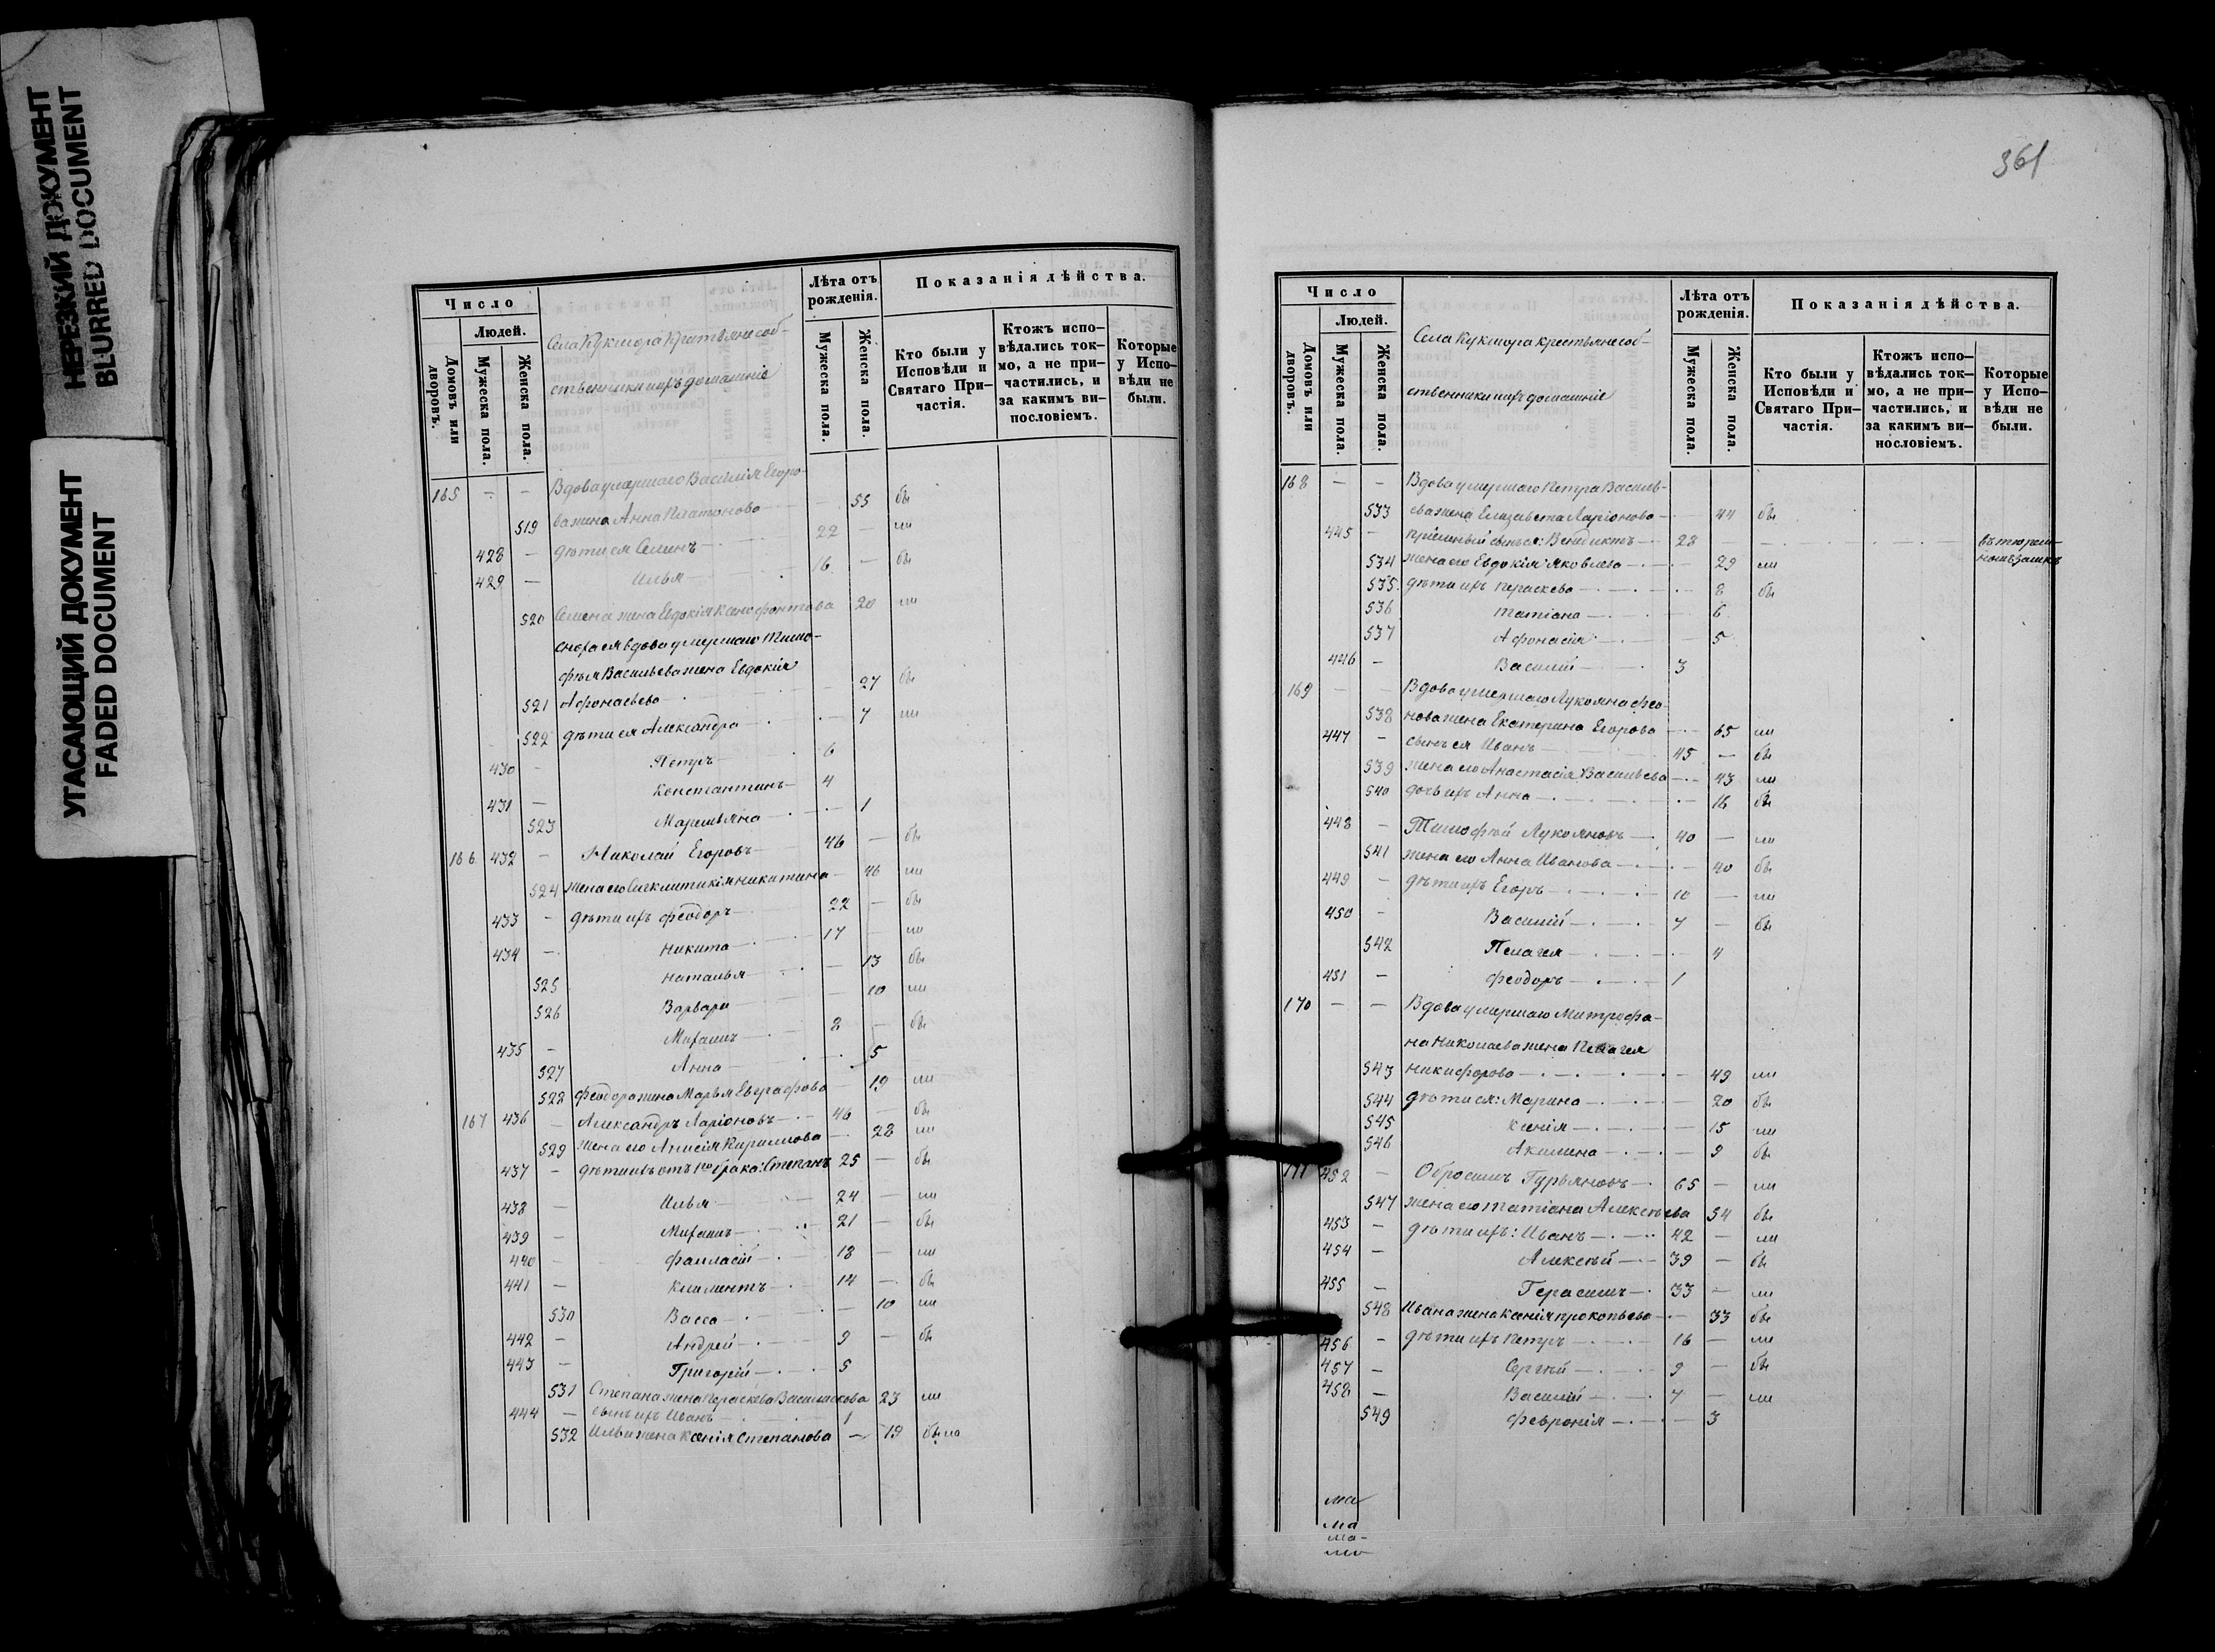 НЕРЕЗКИЙ ДОКУМЕНТ
BLURRED DOCUMENT
УГАСАЮЩИЙ ДОКУМЕНТ
FADED DOCUMENT
Число
Людей.
Домовъ или дворовъ.
Мужеска пола.
Женска пола.
Села Кукмора Крестьяне соб-
ственники и ихъ домашніе
Лѣта отъ рожденія.
Мужеска пола.
Женска пола.
Показанія дѣйства.
Кто были у Исповѣди и Святаго При-частія.
Ктожъ испо-вѣдались ток-мо, а не при-частились, и за какимъ ви-нословіемъ.
Которые у Испо-вѣди не были.
165 — — Вдова умершаго Василія Егоро-
519 ва жена Анна Платонова 55 бы
428 — дѣти ея Семенъ 22 — ли
429 — Илья 16 — бы
520 Семена жена Евдокія Ксенофонтова 20 ли
сноха ея вдова умершаго Тимо-
фея Васильева жена Евдокія
521 Афонасьева 27 бы
522 дѣти ея Александра 7 ли
430 — Петръ 6
431 — Константинъ 4
523 Маремьяна 1
166 432 — Николай Егоровъ 46 — бы
524 жена его Синклитикія Никитина 46 ли
433 — дѣти ихъ Феодоръ 22 — бы
434 — Никита 17 — ли
525 Наталья — 13 бы
526 Варвара — 10 ли
435 — Михаилъ 8 — бы
527 Анна 5
528 Феодора жена Марья Евграфова 19 ли
167 436 — Александръ Ларіоновъ 46 — бы
529 жена его Анисія Кирилова 28 ли
437 — дѣти ихъ отъ 1го брака: Степанъ 25 — бы
438 — Илья 24 — ли
439 — Михаилъ 21 — бы
440 — 18 — ли
441 — Климентъ 14 — бы
530 Васса — 10 ли
442 — Андрей 9 — бы
443 — Григорій 5
531 Степана жена Пераскева Василискова 23 ли
444 — сынъ ихъ Иванъ 1
532 Ильи жена Ксенія Степанова — 19 были
361
Число
Людей.
Домовъ или дворовъ.
Мужеска пола.
Женска пола.
Села Кукмора крестьяне соб-
ственники и ихъ домашніе
Лѣта отъ рожденія.
Мужеска пола.
Женска пола.
Показанія дѣйства.
Кто были у Исповѣди и Святаго При-частія.
Ктожъ испо-вѣдались ток-мо, а не при-частились, и за какимъ ви-нословіемъ.
Которые у Испо-вѣди не были.
168 — — Вдова умершаго Петра Василь-
533 ева жена Елизавета Ларіонова 44 бы
445 — пріемный сынъ ея: Венедиктъ 28 — въ тюрем-
номъ замкѣ
534 жена его Евдокія Яковлева 29 ли
535 дѣти ихъ Пераскева 8 бы
536 Татіана 6
537 Афонасія 5
446 — Василій 3
169 — — Вдова умершаго Лукояна Фео-
538 нова жена Екатерина Егорова 65 ли
447 — сынъ ея Иванъ 45 — бы
539 жена его Анастасія Васильева 43 ли
540 дочь ихъ Анна 16 бы
448 — Тимофей Лукояновъ 40 — ли
541 жена его Анна Иванова 40 бы
449 — дѣти ихъ Егоръ 10 — ли
450 — Василій 7 — бы
542 Пелагея 4
451 — Феодоръ 1
170 — — Вдова умершаго Митрофа-
на Николаева жена Пелагея
543 Никифорова 49 ли
544 дѣти ея: Марина 20 бы
545 Ксенія 15 ли
546 Акилина 9 бы
171 452 — Обросимъ Гурьяновъ 65 — ли
547 жена его Татіана Алексѣева 54 бы
453 — дѣти ихъ: Иванъ 42 — ли
454 — Алексѣй 39 — бы
455 — Герасимъ 33 — ли
548 Ивана жена Ксенія Прокопьева 33 бы
456 — дѣти ихъ Петръ 16 — ли
457 — Сергѣй 9 — бы
458 — Василій 7 — ли
549 Февронія 3